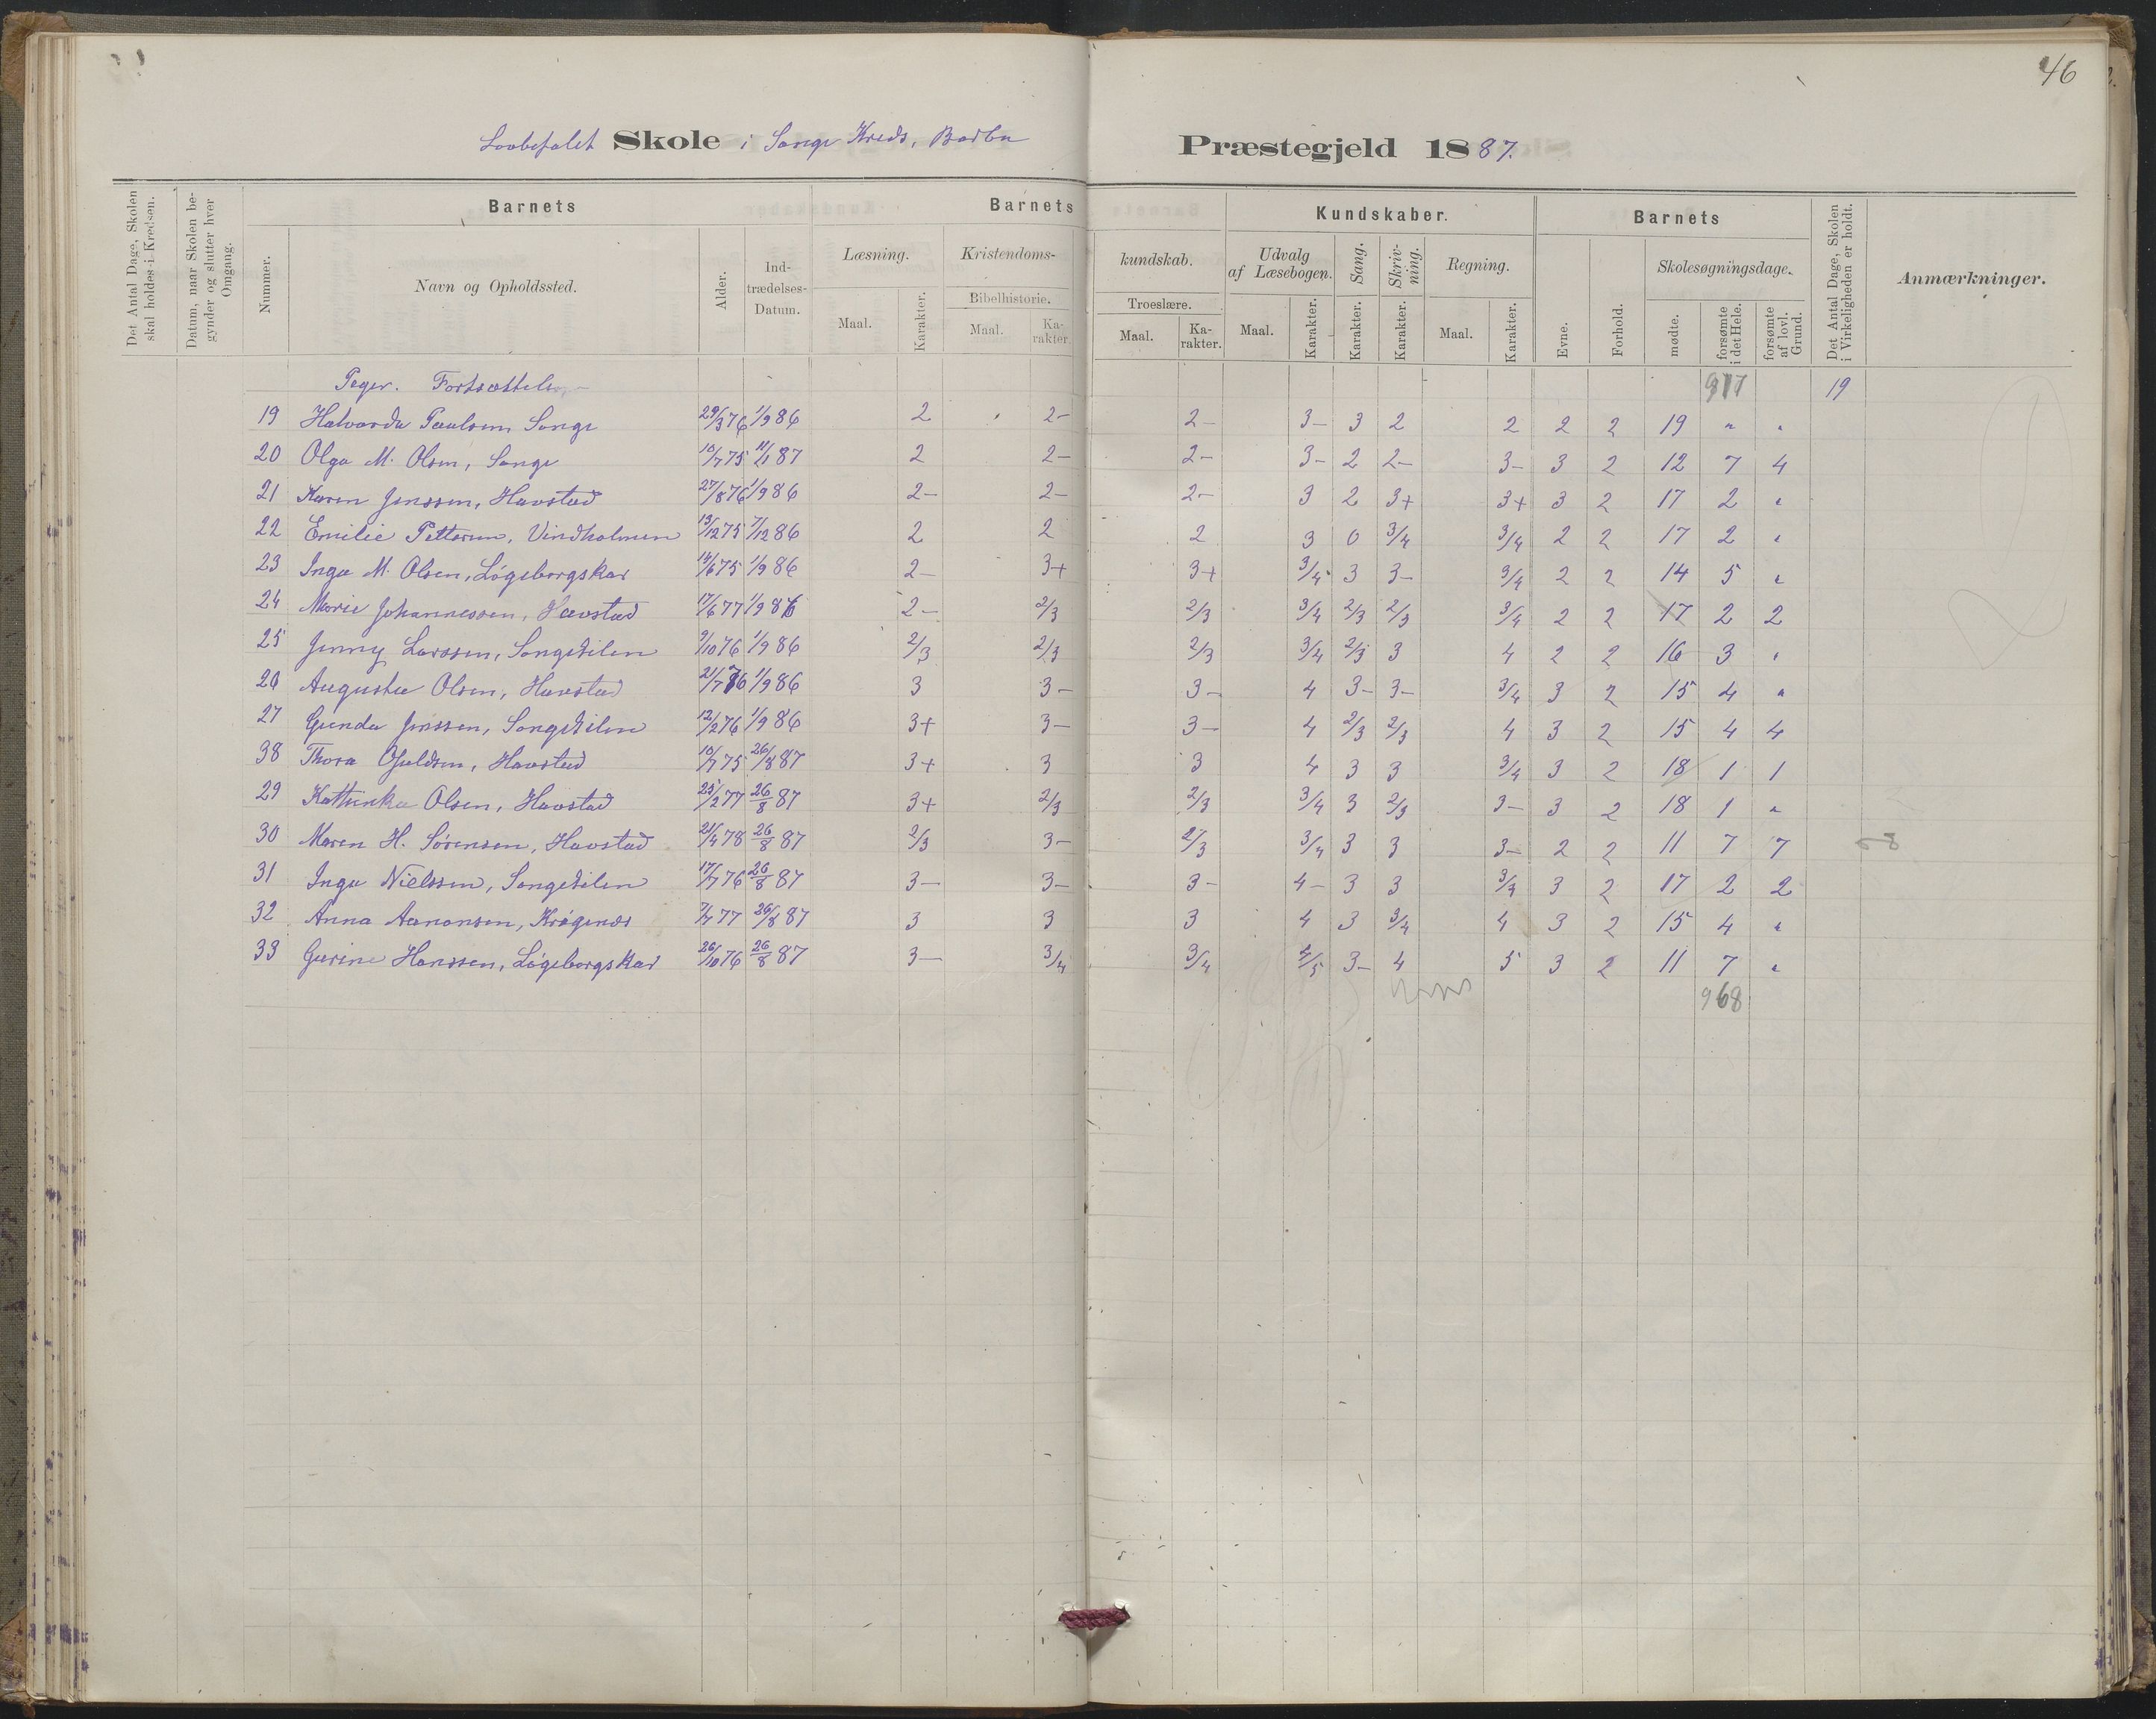 46
Lovbefalet Skole i Songe Kreds, Barbu Præstegjeld 1887.
Det Antal Dage, Skolen skal holdes i Kredsen.
Datum, naar Skolen begynder og slutter hver Omgang.
Barnets Barnets Kundskaber. Barnets
Nummer. Navn og Opholdssted. Alder. Indtrædelses-Datum.
Læsning. Maal. Karakter.
Kristendoms- kundskab.
Bibelhistorie. Maal. Karakter.
Troeslære. Maal. Karakter.
Udvalg af Læsebogen. Maal. Karakter.
Sang. Karakter.
Skrivning. Karakter.
Regning. Maal. Karakter.
Evne. Forhold.
Skolesøgningsdage. mødte. forsømte i det Hele. forsømte af lovl. Grund.
Det Antal Dage, Skolen i Virkeligheden er holdt.
Anmærkninger.
Piger. Fortsættelse 917 19
19 Halvarda Paulsen Songe 29/3 76 1/9 86 2 2- 2- 3- 3 2 2 2 2 19 " "
20 Olga M. Olsen, Songe 10/7 75 11/1 87 2 2- 2- 3- 2 2- 3- 3 2 12 7 4
21 Karen Jenssen, Havstad 27/8 76 1/9 86 2- 2- 2- 3 2 3+ 3+ 3 2 17 2 "
22 Emilie Pettersen, Vindholmen 13/12 75 7/12 86 2 2 2 3 0 3/4 3/4 2 2 17 2 "
23 Inga M. Olsen, Løgeborgskar 14/6 75 1/9 86 2- 3+ 3+ 3/4 3 3- 3/4 2 2 14 5 "
24 Marie Johannessen, Havstad 17/6 77 1/9 86 2- 2/3 2/3 3/4 2/3 2/3 3/4 2 2 17 2 2
25 Jenny Larssen, Songekilen 9/10 76 1/9 86 2/3 2/3 2/3 3/4 2/3 3 4 2 2 16 3 "
26 Augusta Olsen, Havstad 21/7 76 1/9 86 3 3- 3- 4 3- 3- 3/4 3 2 15 4 "
27 Gunda Jenssen, Songekilen 12/2 76 1/9 86 3+ 3- 3- 4 2/3 2/3 4 3 2 15 4 4
38 Thora Ofeldsen, Havstad 10/7 75 26/8 87 3+ 3 3 4 3 3 3/4 3 2 18 1 1
29 Kathinka Olsen, Havstad 25/2 77 26/8 87 3+ 2/3 2/3 3/4 3 2/3 3- 3 2 18 1 "
30 Maren H. Sørensen, Havstad 21/4 78 26/8 87 2/3 3- 2/3 3/4 3 3 3- 2 2 11 7 7
31 Inga Nielssen, Songekilen 17/7 76 26/8 87 3- 3- 3- 4- 3 3 3/4 3 2 17 2 2
32 Anna Aanonsen, Krøgenes 7/7 77 26/8 87 3 3 3 4 3 3/4 4 3 2 15 4 "
33 Gurine Hanssen, Løgeborgskar 26/10 76 26/8 87 3- 3/4 3/4 4/5 3- 4 5 3 2 11 7 "
968